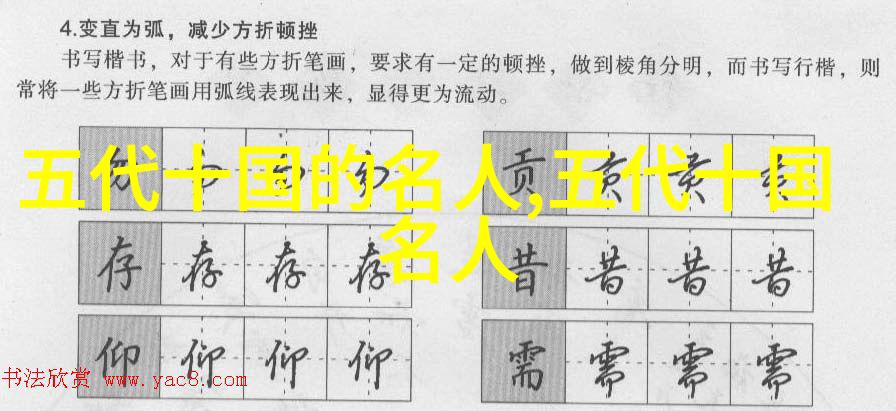 4.变直为弧，减少方折顿挫
书写楷书，对于有些方折笔画，要求有一定的顿挫，做到棱角分明，而书写行楷，则
常将一些方折笔画用弧线表现出来，显得更为流动。
五代十国的名人,五代十国
名人
勿 勿 勿 勿
贡 贡 贡 贡
存 存 存 存
昔 昔 昔 昔
仰 仰 仰 仰
需 需 需 需
书法欣赏 www.yac8.com